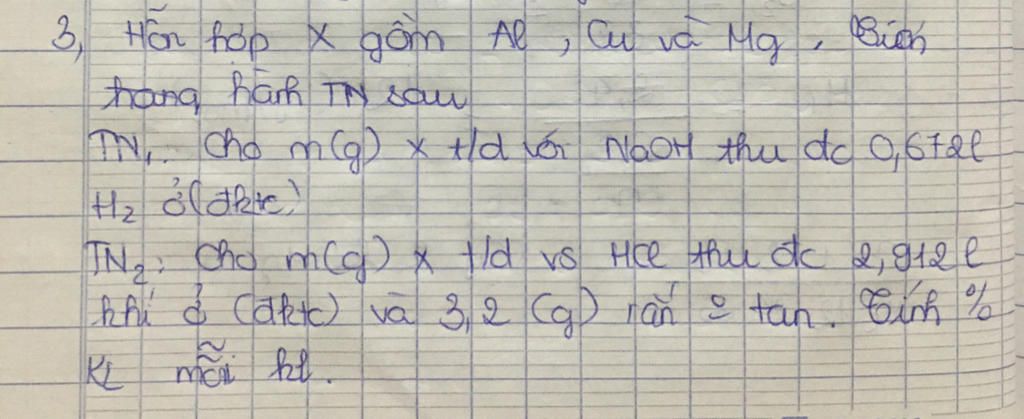 3, Hỗn hợp X gồm Al, Cu và Mg. Tiến
hành TN sau
TN1: Cho m(g) X t/d với NaOH thu đc 0,672l
H2 ở (đktc)
TN2: Cho m(g) X t/d vs HCl thu đc 2,912l
khí ở (đktc) và 3,2 (g) rắn o tan. Tính %
KL mỗi kl.